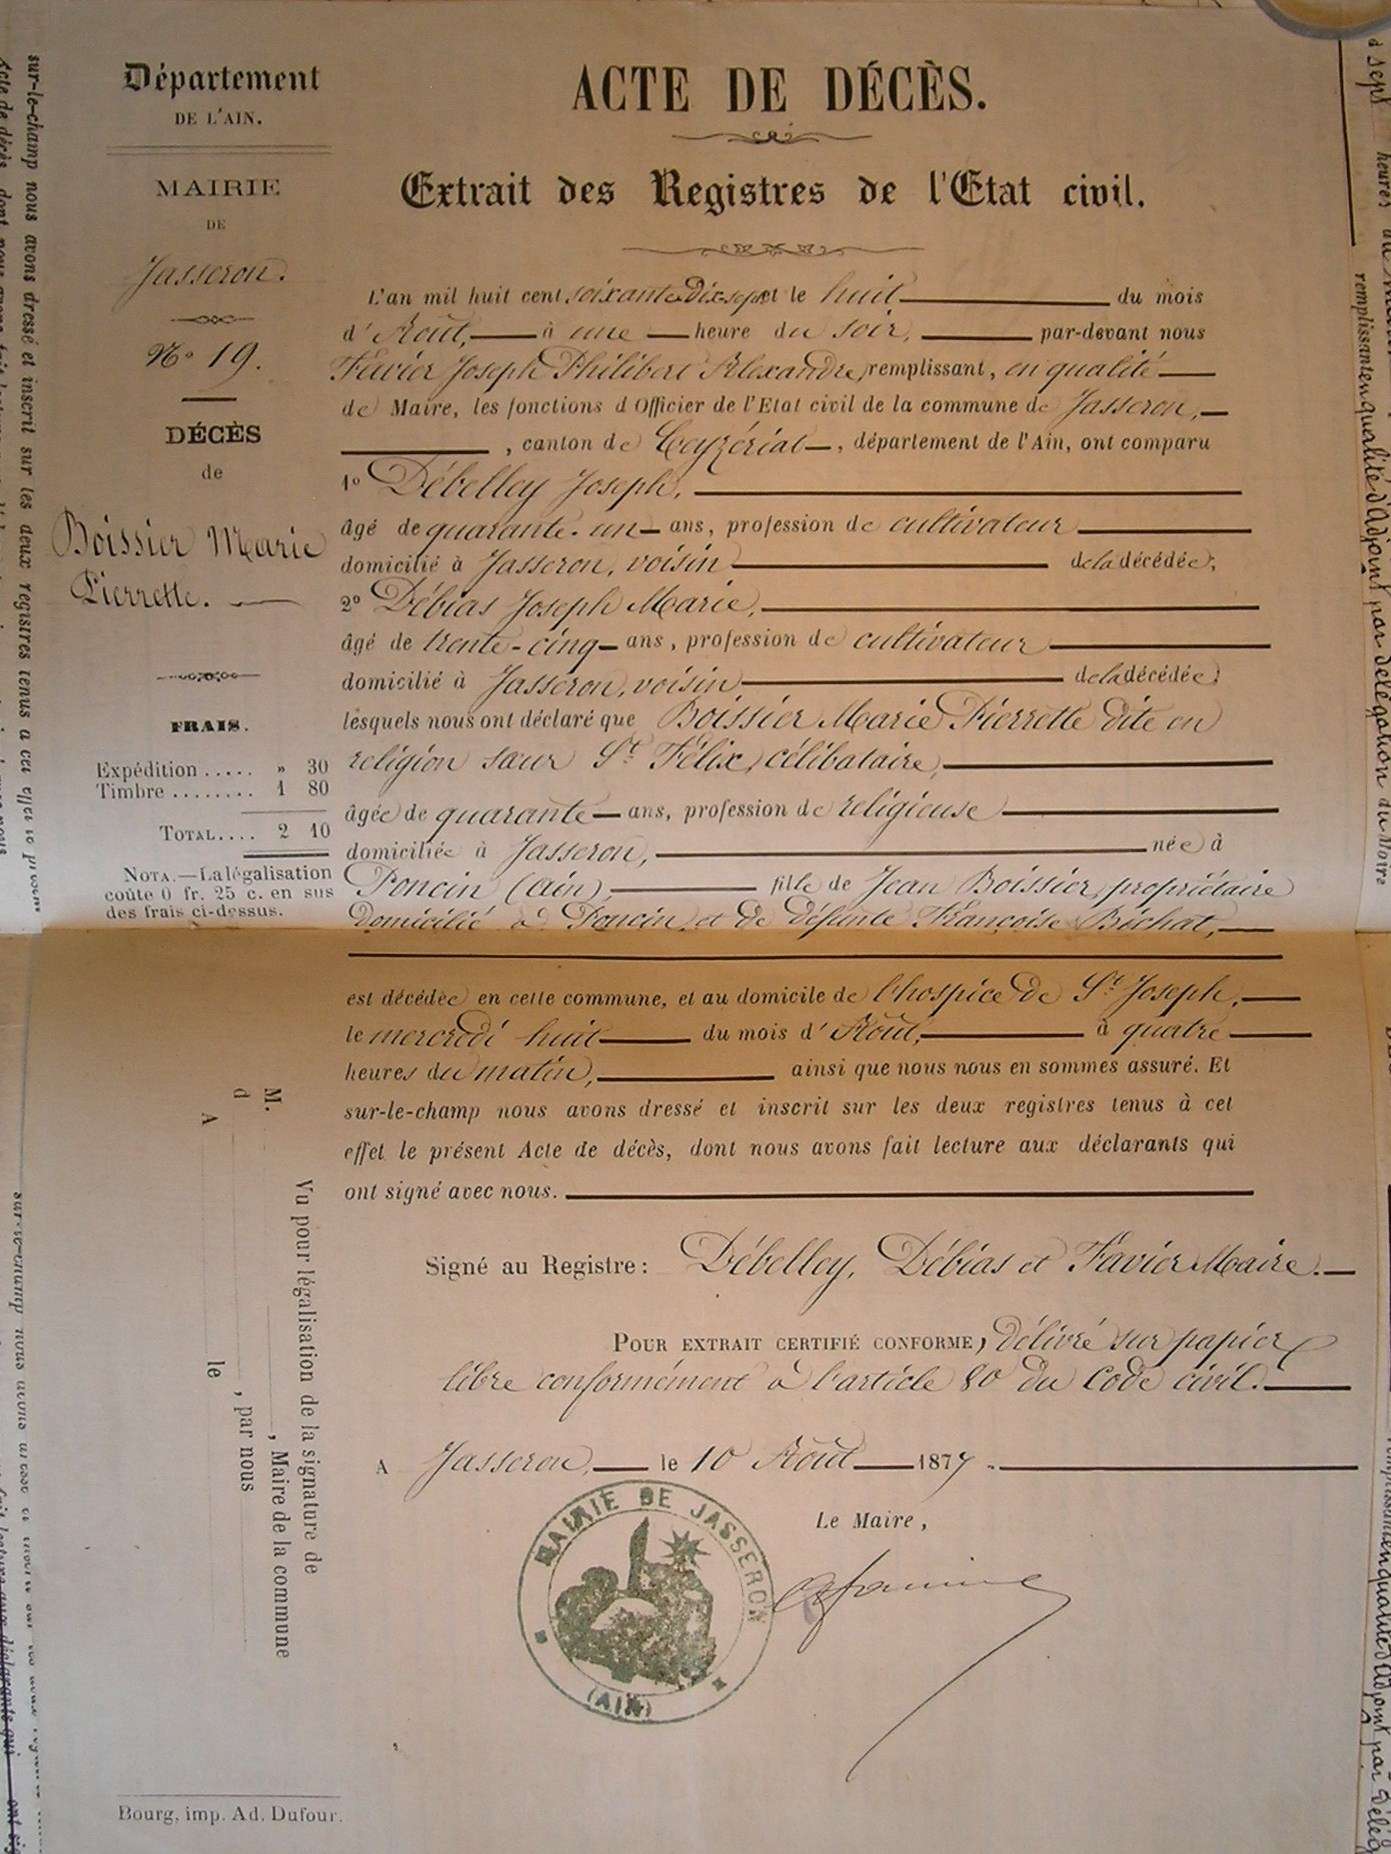 Département
DE L'AIN.
MAIRIE
DE
Jasseron.
No 19.
DÉCÈS
de
Boissier Marie
Pierrette.
FRAIS.
Expédition ..... » 30
Timbre ........ 1 80
TOTAL.... 2 10
NOTA.—La légalisation
coûte 0 fr. 25 c. en sus
des frais ci-dessus.
ACTE DE DÉCÈS.
Extrait des Registres de l'Etat civil.
L'an mil huit cent soixante Dix-sept et le huit du mois
d'Août, à une heure du soir, par-devant nous
Favier Joseph Philibert Alexandre, remplissant, en qualité
de Maire, les fonctions d'Officier de l'Etat civil de la commune de Jasseron,
, canton de Ceyzériat, département de l'Ain, ont comparu
1o Débelley Joseph,
âgé de quarante-un ans, profession de cultivateur
domicilié à Jasseron, voisin de la décédée;
2o Débias Joseph Marie,
âgé de trente-cinq ans, profession de cultivateur
domicilié à Jasseron, voisin de la décédée;
lesquels nous ont déclaré que Boissier Marie Pierrette dite en
religion sœur St Félix, célibataire,
âgée de quarante ans, profession de religieuse
domiciliée à Jasseron, née à
Poncin (Ain), fille de Jean Boissier, propriétaire
Domicilié à Poncin, et de défunte Françoise Béchat,
est décédée en cette commune, et au domicile de l'hospice de St Joseph,
le mercredi huit du mois d'Août, à quatre
heures du matin, ainsi que nous nous en sommes assuré. Et
sur-le-champ nous avons dressé et inscrit sur les deux registres tenus à cet
effet le présent Acte de décès, dont nous avons fait lecture aux déclarants qui
ont signé avec nous.
Signé au Registre: Débelley, Débias et Favier Maire.
POUR EXTRAIT CERTIFIÉ CONFORME, Délivré sur papier
libre conformément à l'article 80 du Code civil.
A Jasseron, le 10 Août 1877.
Le Maire,
MAIRIE DE JASSERON
(AIN)
Vu pour légalisation de la signature de
M. , Maire de la commune
d , par nous
A le
Bourg, imp. Ad. Dufour.
sur-le-champ nous avons dressé et inscrit sur les deux registres tenus à cet effet le
Acte de décès, dont nous
à sept heures du
remplissant en qualité d'Adjoint par délégation du Maire
sur-le-champ nous avons
remplissant en qualité d'Adjoint par Délég